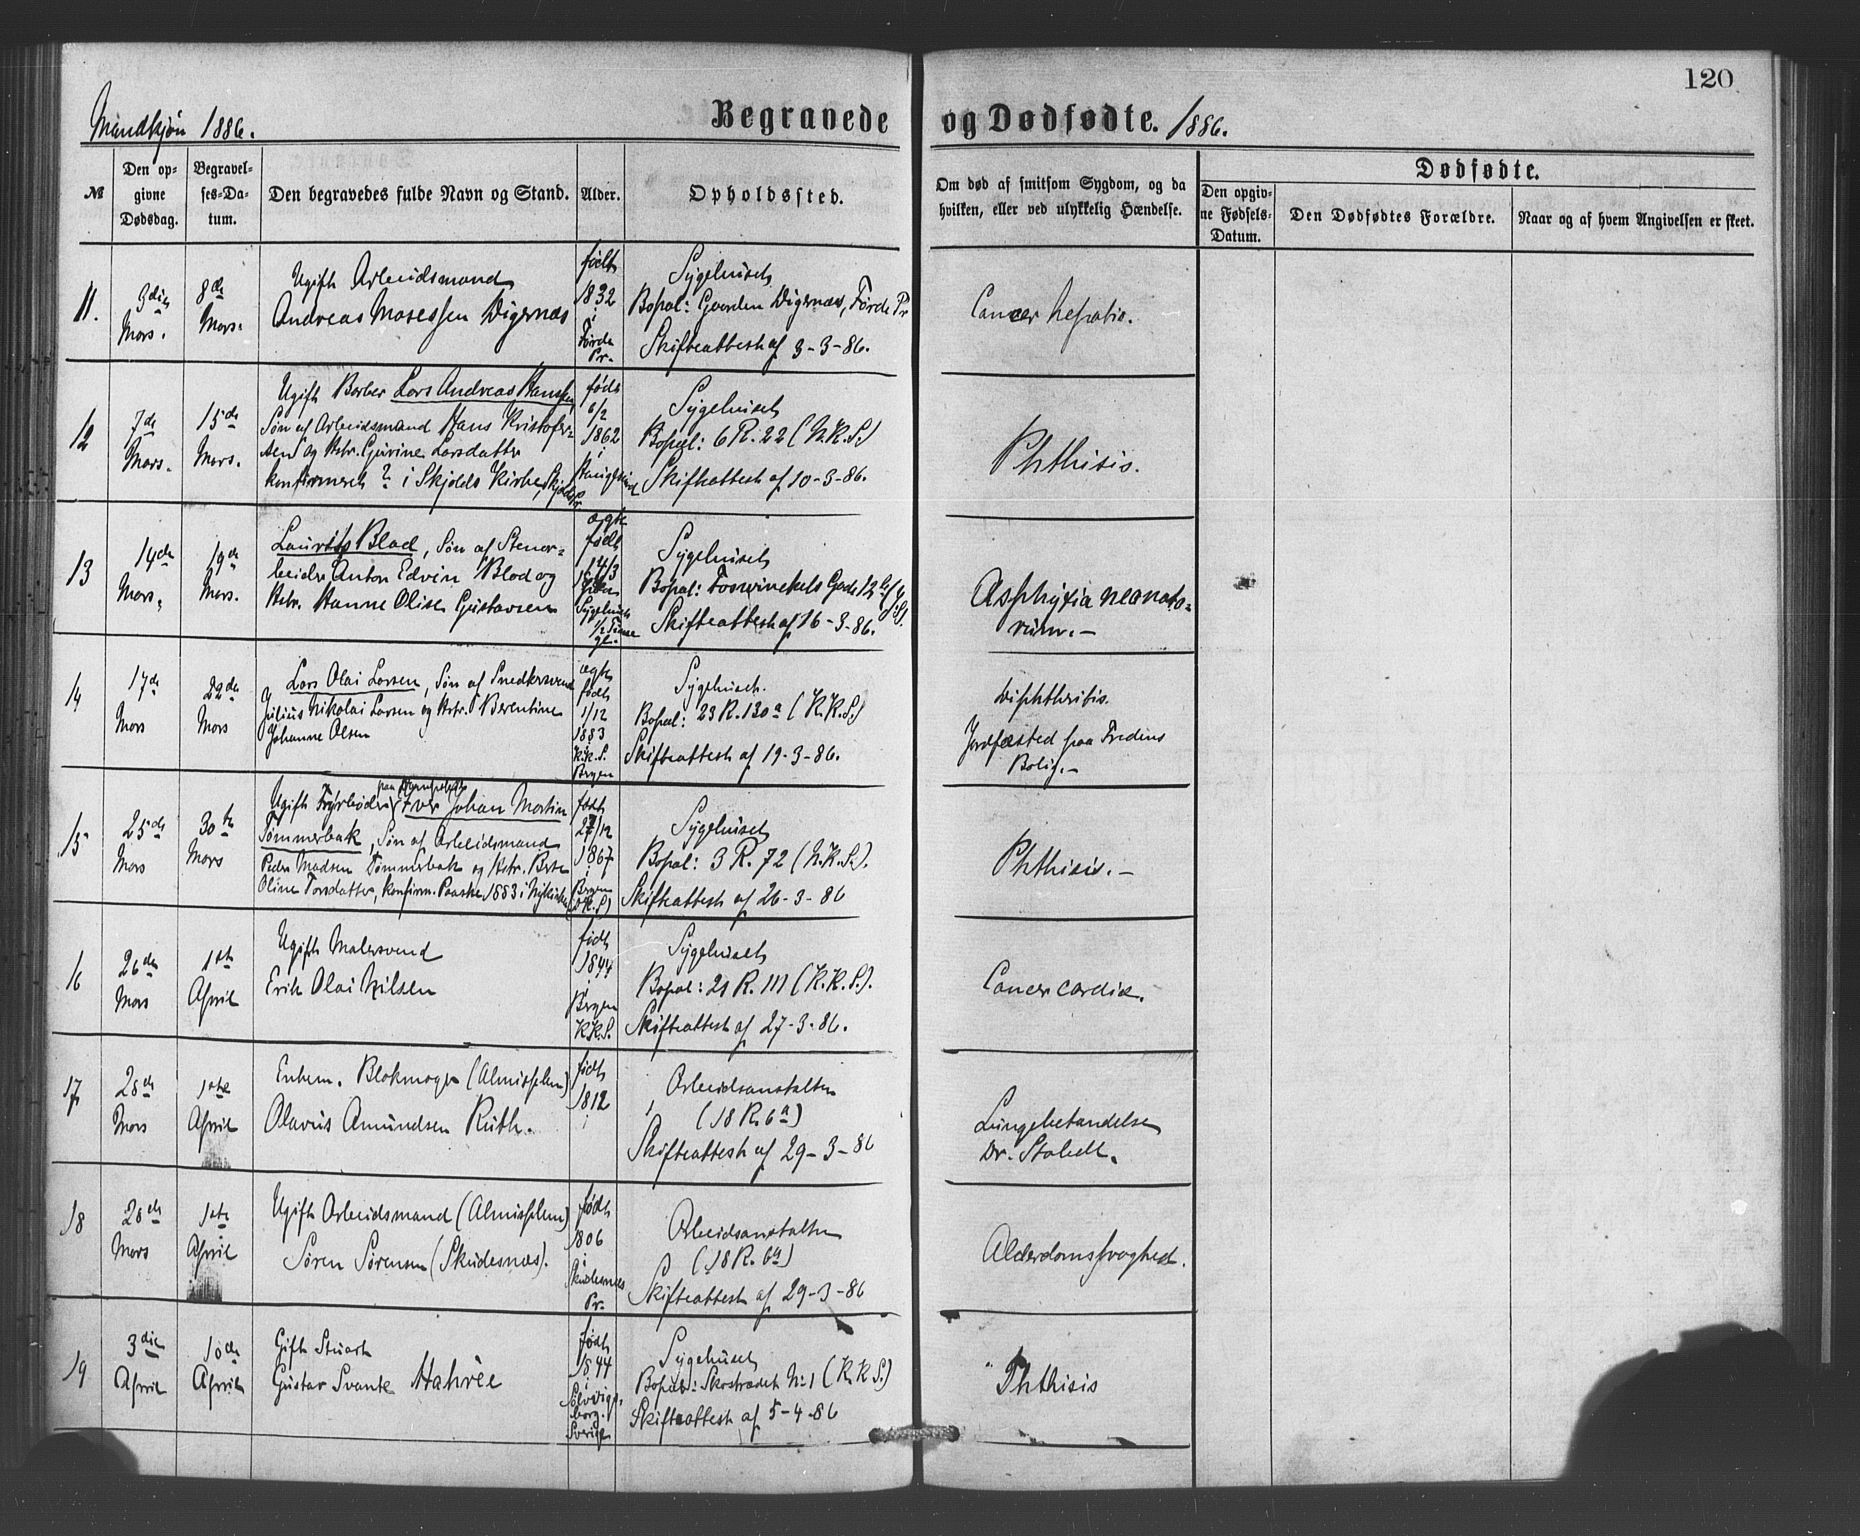 120
Mandkjøn 1886.
Begravede og Dødfødte. 1886.
№
Den opgivne Dødsdag.
Begravelses-Datum.
Den begravedes fulde Navn og Stand.
Alder.
Opholdssted.
Om død af smitsom Sygdom, og da
hvilken, eller ved ulykkelig Hændelse.
Dødfødte.
Den opgivne Fødsels-Datum.
Den Dødfødtes Forældre.
Naar og af hvem Angivelsen er skeet.
11.
3die
Mars.
8de
Mars.
Ugift Arbeidsmand
Andreas Mosessen Digernæs
født
1832
i
Førde
Pr.
Sygehuset
Bopæl: Gaarden Digernæs, Førde Pr
Skifteattest af 3-3-86.
Cancer hepatis.
12
7de
Mars.
15de
Mars.
Ugift Barber Lars Andreas Hansen,
Søn af Arbeidsmand Hans Kristofer-
sen og Hstr. Gurine Larsdatter
konfirmeret ? i Skjolds Kirke, Skjolds Pr
født
6/2
1862
i
Haugesund
Sygehuset
Bopæl: 6 R. 22 (N.K.S.)
Skifteattest af 10-3-86.
Phthisis.
13
14de
Mars.
19de
Mars.
Laurits Blad, Søn af Stenar-
beider Anton Edvin Blad og
Hstr. Hanne Olise Gustavsen
ægte
født
14/3
Sygehuset
1/2 Time
gl.
Sygehuset
Bopæl: Foswinckels Gade 12
Skifteattest af 16-3-86.
Asphyxia neonato-
rum.-
14
17de
Mars
22de
Mars
Lars Olai Larsen, Søn af Snedkersvend
Julius Nikolai Larsen og Hstr. Berentine
Johanne Olsen
ægte
født
1/12
1883
K.K.S.
Bergen
Sygehuset.
Bopæl: 23 R. 130a (K.K.S.)
Skifteattest af 19-3-86.
Diphtheritis.
Jordfæsted paa Fredens
Bolig.-
15
25de
Mars
30te
Mars
Ugift Fyrbøder paa Dampskib Iver Johan Martin
Tømmerbak, Søn af Arbeidsmand
Peder Madsen Tømmerbak og Hstr. Berte
Oline Torsdatter, konfirm. Paaske 1883 i Nykirken
født
27/12
1867
i
Bergen
(N.K.S.)
Sygehuset
Bopæl: 3 R. 72 (N.K.S.).
Skifteattest af 26-3-86
Phthisis.-
16
26de
Mars
1ste
April
Ugift Malersvend
Erik Olai Nilsen
født
1844
i
Bergen
K.K.S.
Sygehuset
Bopæl: 21 R. 111 (K.K.S.).
Skifteattest af 27-3-86.
Cancer cardiæ.
17
28de
Mars
1ste
April
Enkem. Blokmager (Almisselem)
Olavus Amundsen Ruth.
født
1812
i
Arbeidsanstalten
(18 R. 6a)
Skifteattest af 29-3-86
Lungebetændelse
Dr. Stabell.
18
28de
Mars
1ste
April
Ugift Arbeidsmand (Almisselem)
Søren Sørensen (Skudesnæs).
født
1806
i
Skudesnæs
Pr.
Arbeidsanstalten
(18 R. 6a)
Skifteattest af 29-3-86
Alderdomssvaghed.
19
3die
April
10de
April
Gift Stuart
Gustav Svante Hahrèe
født
1844
i
Sølvitsborg.
Sverige
Sygehuset
Bopæl: Skostrædet No 1 (K.K.S.)
Skifteattest af 5-4-86
Phthisis